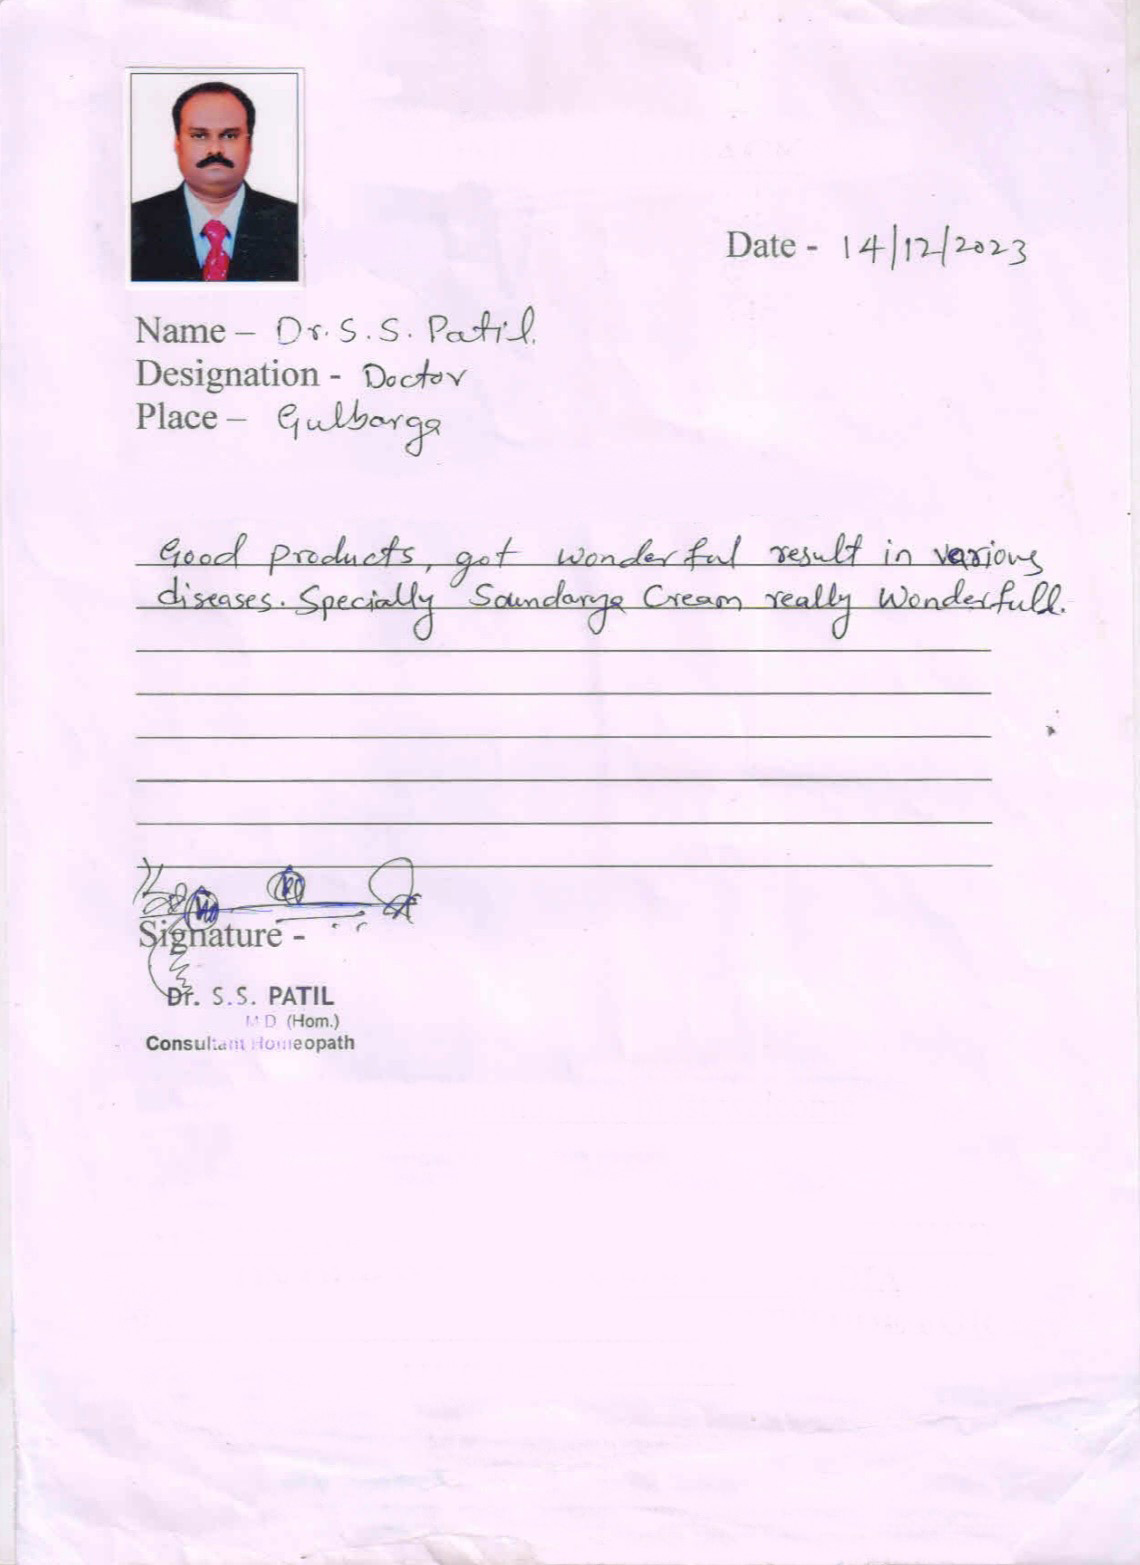 Date - 14/12/2023
Name – Dr. S. S. Patil.
Designation - Doctor
Place – Gulbarga
Good products, got wonderful result in various
diseases. Specially Soundarya Cream really Wonderfull.
Signature -
Dr. S.S. PATIL
M D (Hom.)
Consultant Homeopath